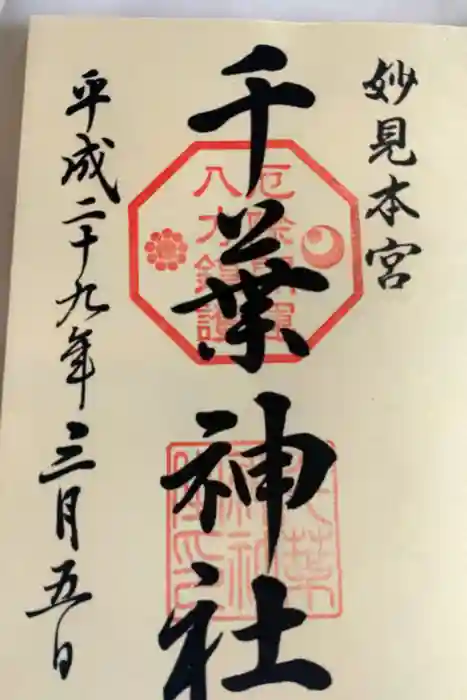 妙見本宮
千葉神社
厄除開運
八方鎮護
平成二十九年三月五日